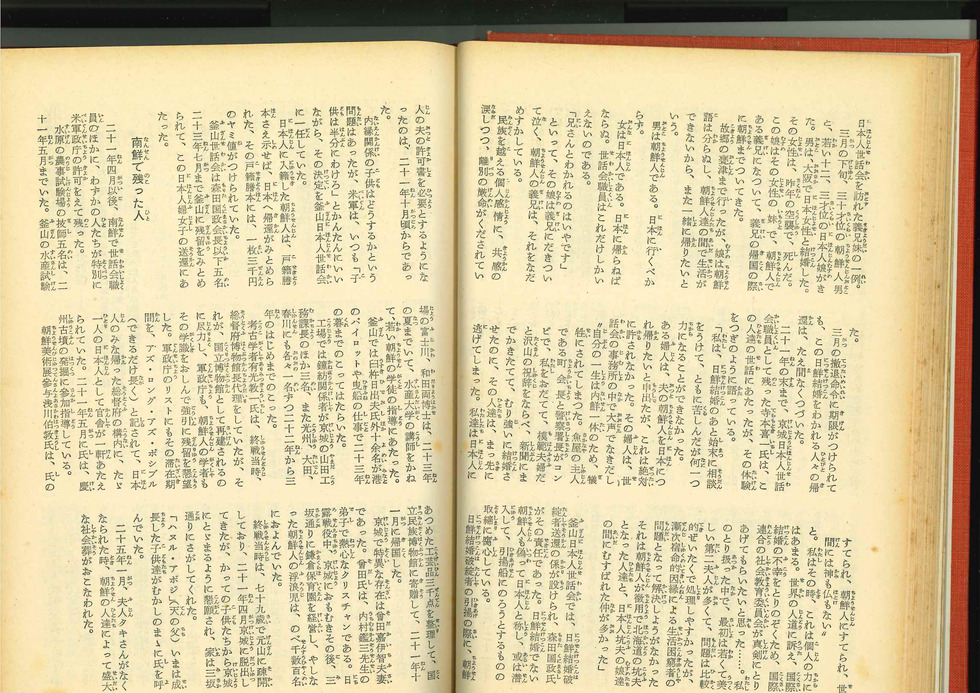 日本人世話会を訪れた義兄妹の一例。
三月の下旬、三十才位の朝鮮人男
と、若い十二、三才位の日本人娘がき
た。男は、大阪で日本女性と結婚した。
その女性は、昨年の空襲で、死んだ。
この娘はその女性の妹で、朝鮮人で
ある義兄になついて、義兄の帰国の際
に朝鮮までついてきた。
故郷の津まで行ったが、娘は朝鮮
語は分らぬし、朝鮮人達の間で生活が
できないから、また一緒に帰りたいと
いう。
男は朝鮮人である。日本に行くべか
らず。
女は日本人である。日本に帰らねば
ならぬ。世話会職員はこれだけしかい
えないのである。
「兄さんとわかれるのはいやです」
といって、その娘は義兄にだきつい
て泣く、朝鮮人の義兄は、それをなだ
めすかしている。
民族を越える個人感情に、共感の
涙しつつ、離別の厳命がくだされてい
た。
三月の撤退命令に期限がつけられて
も、この日鮮結婚をわかれる人の帰
還は、たえ間なくつづいた。
二十一年の末まで、京城日本人世話
会職員として残った寺本喜一氏は、こ
の人達の世話にあたったが、その体験
をつぎのように語っている。
「私は、日鮮結婚のあと始末に相談
をうけて、ともに苦しんだが何一つ
力になることができなかった。
ある婦人は、夫の朝鮮人を日本につ
れ帰りたいと申出たが、これは絶対
に許されなかった。その婦人は、世
話会の事務所の中で大声でなきだし
〝自分の一生は内鮮一体のため、犠
牲にされてしまつた。魚屋の主人
である町会長と警察署長がコン
ビで、私をおだてて、模範夫婦だ
と沢山の祝辞をならべ、新聞にま
でかきたてて、むり強いに結婚さ
せたのに、その人達は、まっ先に
逃げてしまった。私達は日本人に
すてられ、朝鮮人にすてられ、世
間には神も仏もない〟
と。私はその時、これは個人の力に
はあまる。世界の人道に訴え、国際
結婚の不幸をとりのぞくため、国際
連合の社会教育委員会が真剣にとり
あげてもらいたいと思った……私
のとり扱った中で、最初は若くて美
しい第二夫人が多くて、問題は比較
的ぜいたくで処理しやすかったが、
漸次致命的困難による生活困窮者の
問題となって解決しようがなかった
それは朝鮮人が徴用で北海道の坑夫
となった人達と、日本の坑夫の娘達
の間にむすばれた仲が多かった」
釜山日本人世話会では、日鮮結婚破
綻者送還の係が設けられ、森田国政氏
がその責任であった。日鮮結婚でない
朝鮮人も偽って日本人と称し、或は潜
入して、引揚船にのろうとするものの
取締に腐心している。
日鮮結婚破綻者の引揚の際に、朝鮮
人の夫の許可書を必要とするようにな
ったのは、二十一年十月頃からであっ
た。
内縁関係の子供はどうするかという
問題はあったが、米軍は、いつも「子
供は半分にわけろ」とかんたんにいい
ながら、その決定を釜山日本人世話会
に一任していた。
日本人に入籍した朝鮮人は、戸籍謄
本さえ示せば、日本へ帰還がみとめら
れた。その戸籍謄本には、一枚三千円
のヤミ値がつけられていた。
釜山世話会は森田国政会長以下五名
二十三年七月まで釜山に残留をみとめ
られて、この日本人婦女子の送還にあ
たった。
南鮮て残った人
二十一年四月以後、南鮮で世話会職
員のほかに、わずかの人たちが特別に
米軍政の許可をえて残った。
水原の農事試験場の技師五名は、二
十一年五月までいた。釜山の水産試験
場の富士川、和田両博士は、二十三年
の夏までいて、水産大学の講師をかね
て、若い朝鮮の学徒の指導にあたった。
釜山では臼井日出夫氏外十余名が港
のパイロットや曳船の仕事で二十三年
の暮までのこってはたらいた。
工場では鐘紡関係が京城の山川工
務課長のほか三名、また光州、大田、
春川にも各々一名ずつ二十二年から三
年のはじめまでのこった。
考古学者有光教一氏は、終戦当時、
総督府博物館長代理をしていたが、そ
れが、国立博物館として再建されるの
に尽力し、軍政庁も、朝鮮人の学者も
その学識をおしんで切に残留を懇望
した。軍政庁のリストにもその滞在期
間を、アズ・ロング・アズ・ポシブル
(できるだけ長く)と記されて、日本
人のみな帰った総督府の構内に、たゞ
一人の日本人として官舎が一軒あたえ
られていた。二十一年五月に氏は、慶
州古墳の発掘に参加指導している。
朝鮮美術展参与浅川伯教氏は、氏の
あつめた工芸品三千点を整理して、国
立民族博物館に寄贈して、二十一年十
一月に帰国した。
京城で特異な存在は曾田嘉伊智夫妻
であった。曾田氏は、内村鑑三先生の
弟子で熱心なクリスチャンである。日
露戦役中、京城におもむきその後、三
坂通りに鎌倉保育園を経営し、やしな
った朝鮮人の浮浪児は、のべ千数百名
におよんでいた。
終戦当時は、七十九歳で元山に疎開
しており、二十一年四月京城に脱出し
てきたが、かっての子供たちから京城
にとゞまるように懇願され、家は三坂
通りにさがしてくれた。
「ハヌル・アボジ」(天の父)いまは成
長した子供達がむかしのまゝに氏を呼
んでいた。
二十五年一月、夫人タキさんがなく
なられた時、朝鮮の人達によって盛大
な社会葬がおこなわれた。